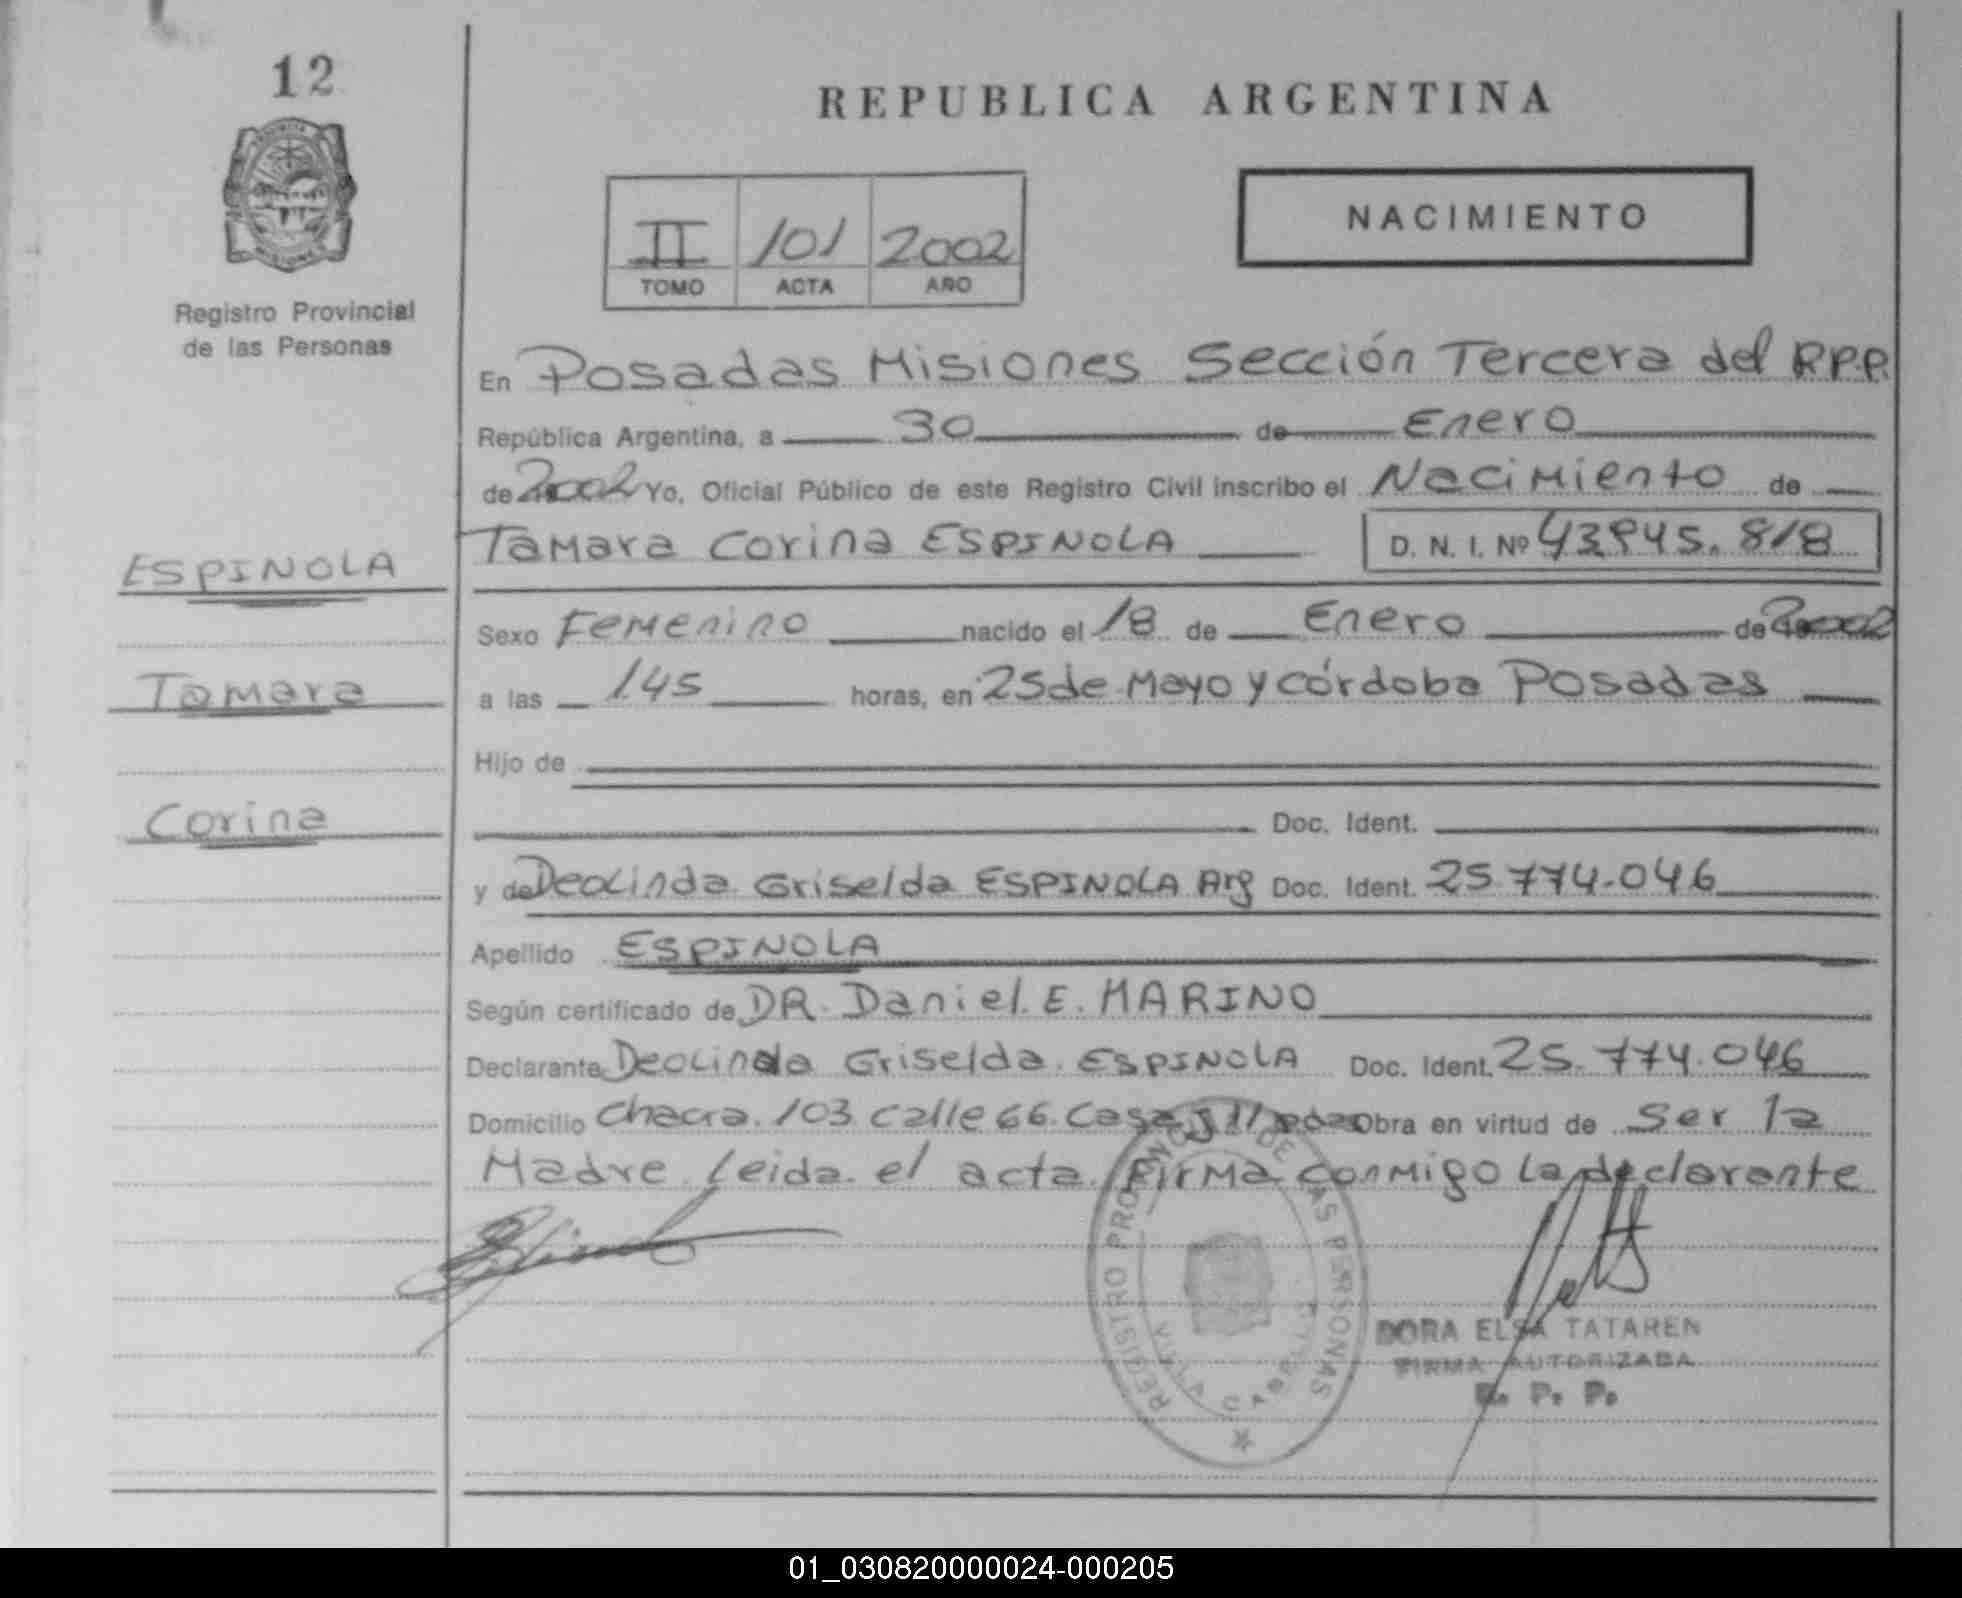 12
REPUBLICA ARGENTINA
II 101 2002
TOMO ACTA AÑO
NACIMIENTO
Registro Provincial
de las Personas
En Posadas Misiones Sección Tercera del R.P.P.
República Argentina, a 30 de Enero
de 2002 Yo, Oficial Público de este Registro Civil inscribo el Nacimiento de
Tamara Corina ESPINOLA D. N. I. Nº 43.945.818
ESPINOLA
Sexo Femenino nacido el 18 de Enero de 2002
Tamara
a las 1.45 horas, en 25 de Mayo y Córdoba Posadas
Hijo de
Corina
Doc. Ident.
y de Deolinda Griselda ESPINOLA Arg Doc. Ident. 25.774.046
Apellido ESPINOLA
Según certificado de DR. Daniel. E. MARINO
Declarante Deolinda Griselda. ESPINOLA Doc. Ident. 25.774.046
Domicilio Chacra. 103 Calle 66. Casa Obra en virtud de Ser la
Madre. Leida. el acta. Firma conmigo La declarante
REGISTRO PROVINCIAL DE LAS PERSONAS
VILLA CABELLO
DORA ELSA TATAREN
FIRMA AUTORIZADA
R. P. P.
01_030820000024-000205